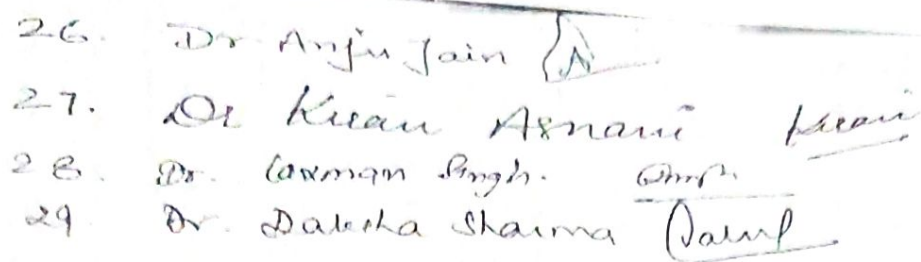 26. Dr Anju Jain
27. Dr Kiran Asnani Kiran
28. Dr. Laxman Singh.
29 Dr. Daksha Sharma